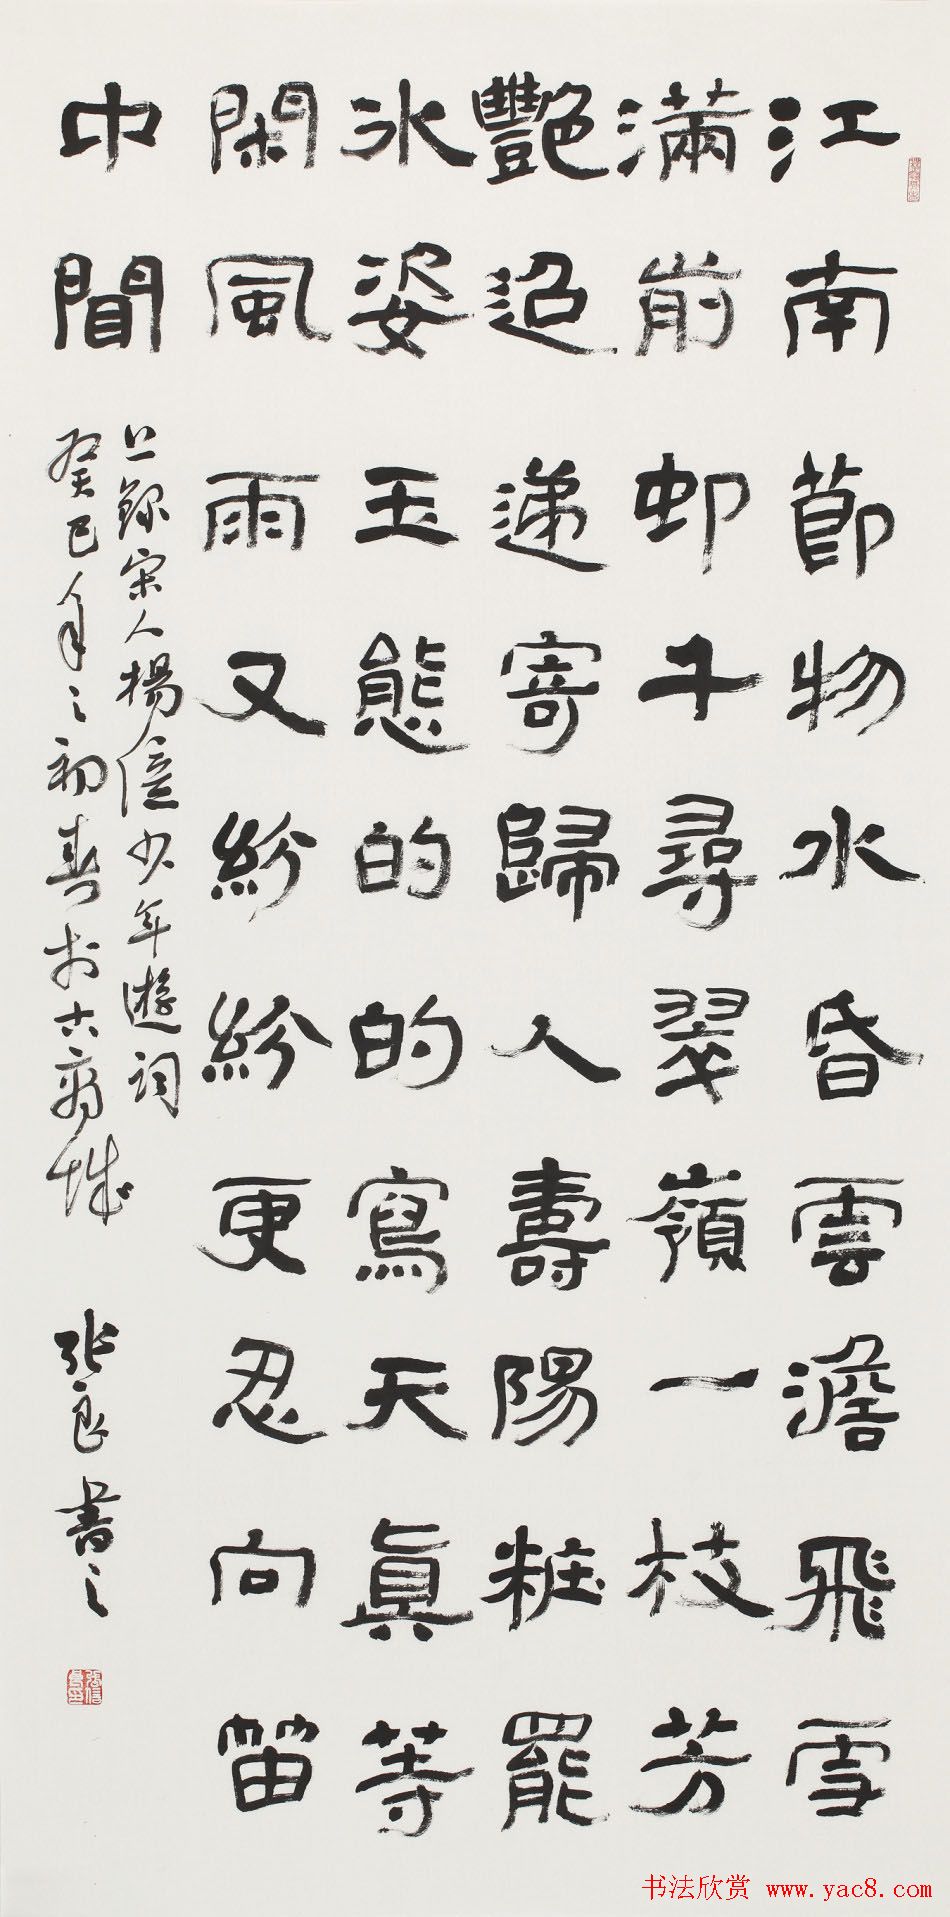 江南節物水昏雲澹飛雪
滿前邨千尋翠嶺一枝芳
艷迢递寄歸人壽陽粧罷
冰姿玉態的的寫天眞等
閑風雨又紛紛更忍向笛
中聞
上錄宋人楊億少年遊詞
癸巳年之初春於古商城 張良書之
书法欣赏 www.yac8.com